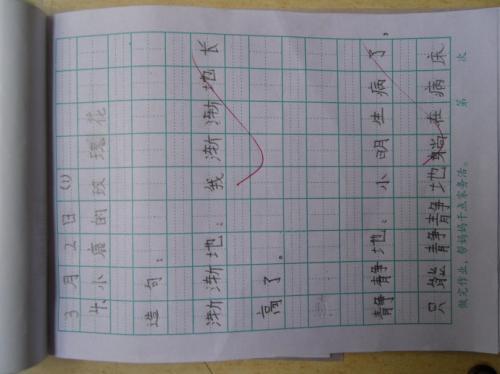 3月2日 (1)
4、小鹿的玫瑰花
造句：
渐渐地：我渐渐地长
高了。
静静地：小明生病了，
只能静静地躺在病床
做完作业，帮妈妈干点家务活。 第 次